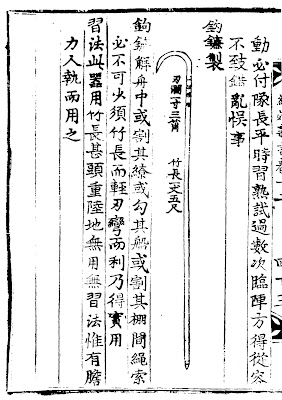 動必付隊長平時習熟試過數次臨陣方得從容
不致錯亂悞事
鈎鐮製
刃濶一寸三分
竹長一丈五尺
鈎鐮解舟中或割其繚或勾其船或割其棚間繩索
必不可少須竹長而輕刃彎而利乃得實用
習法此器用竹長甚頭重陸地無用無習法惟有膽
力人執而用之